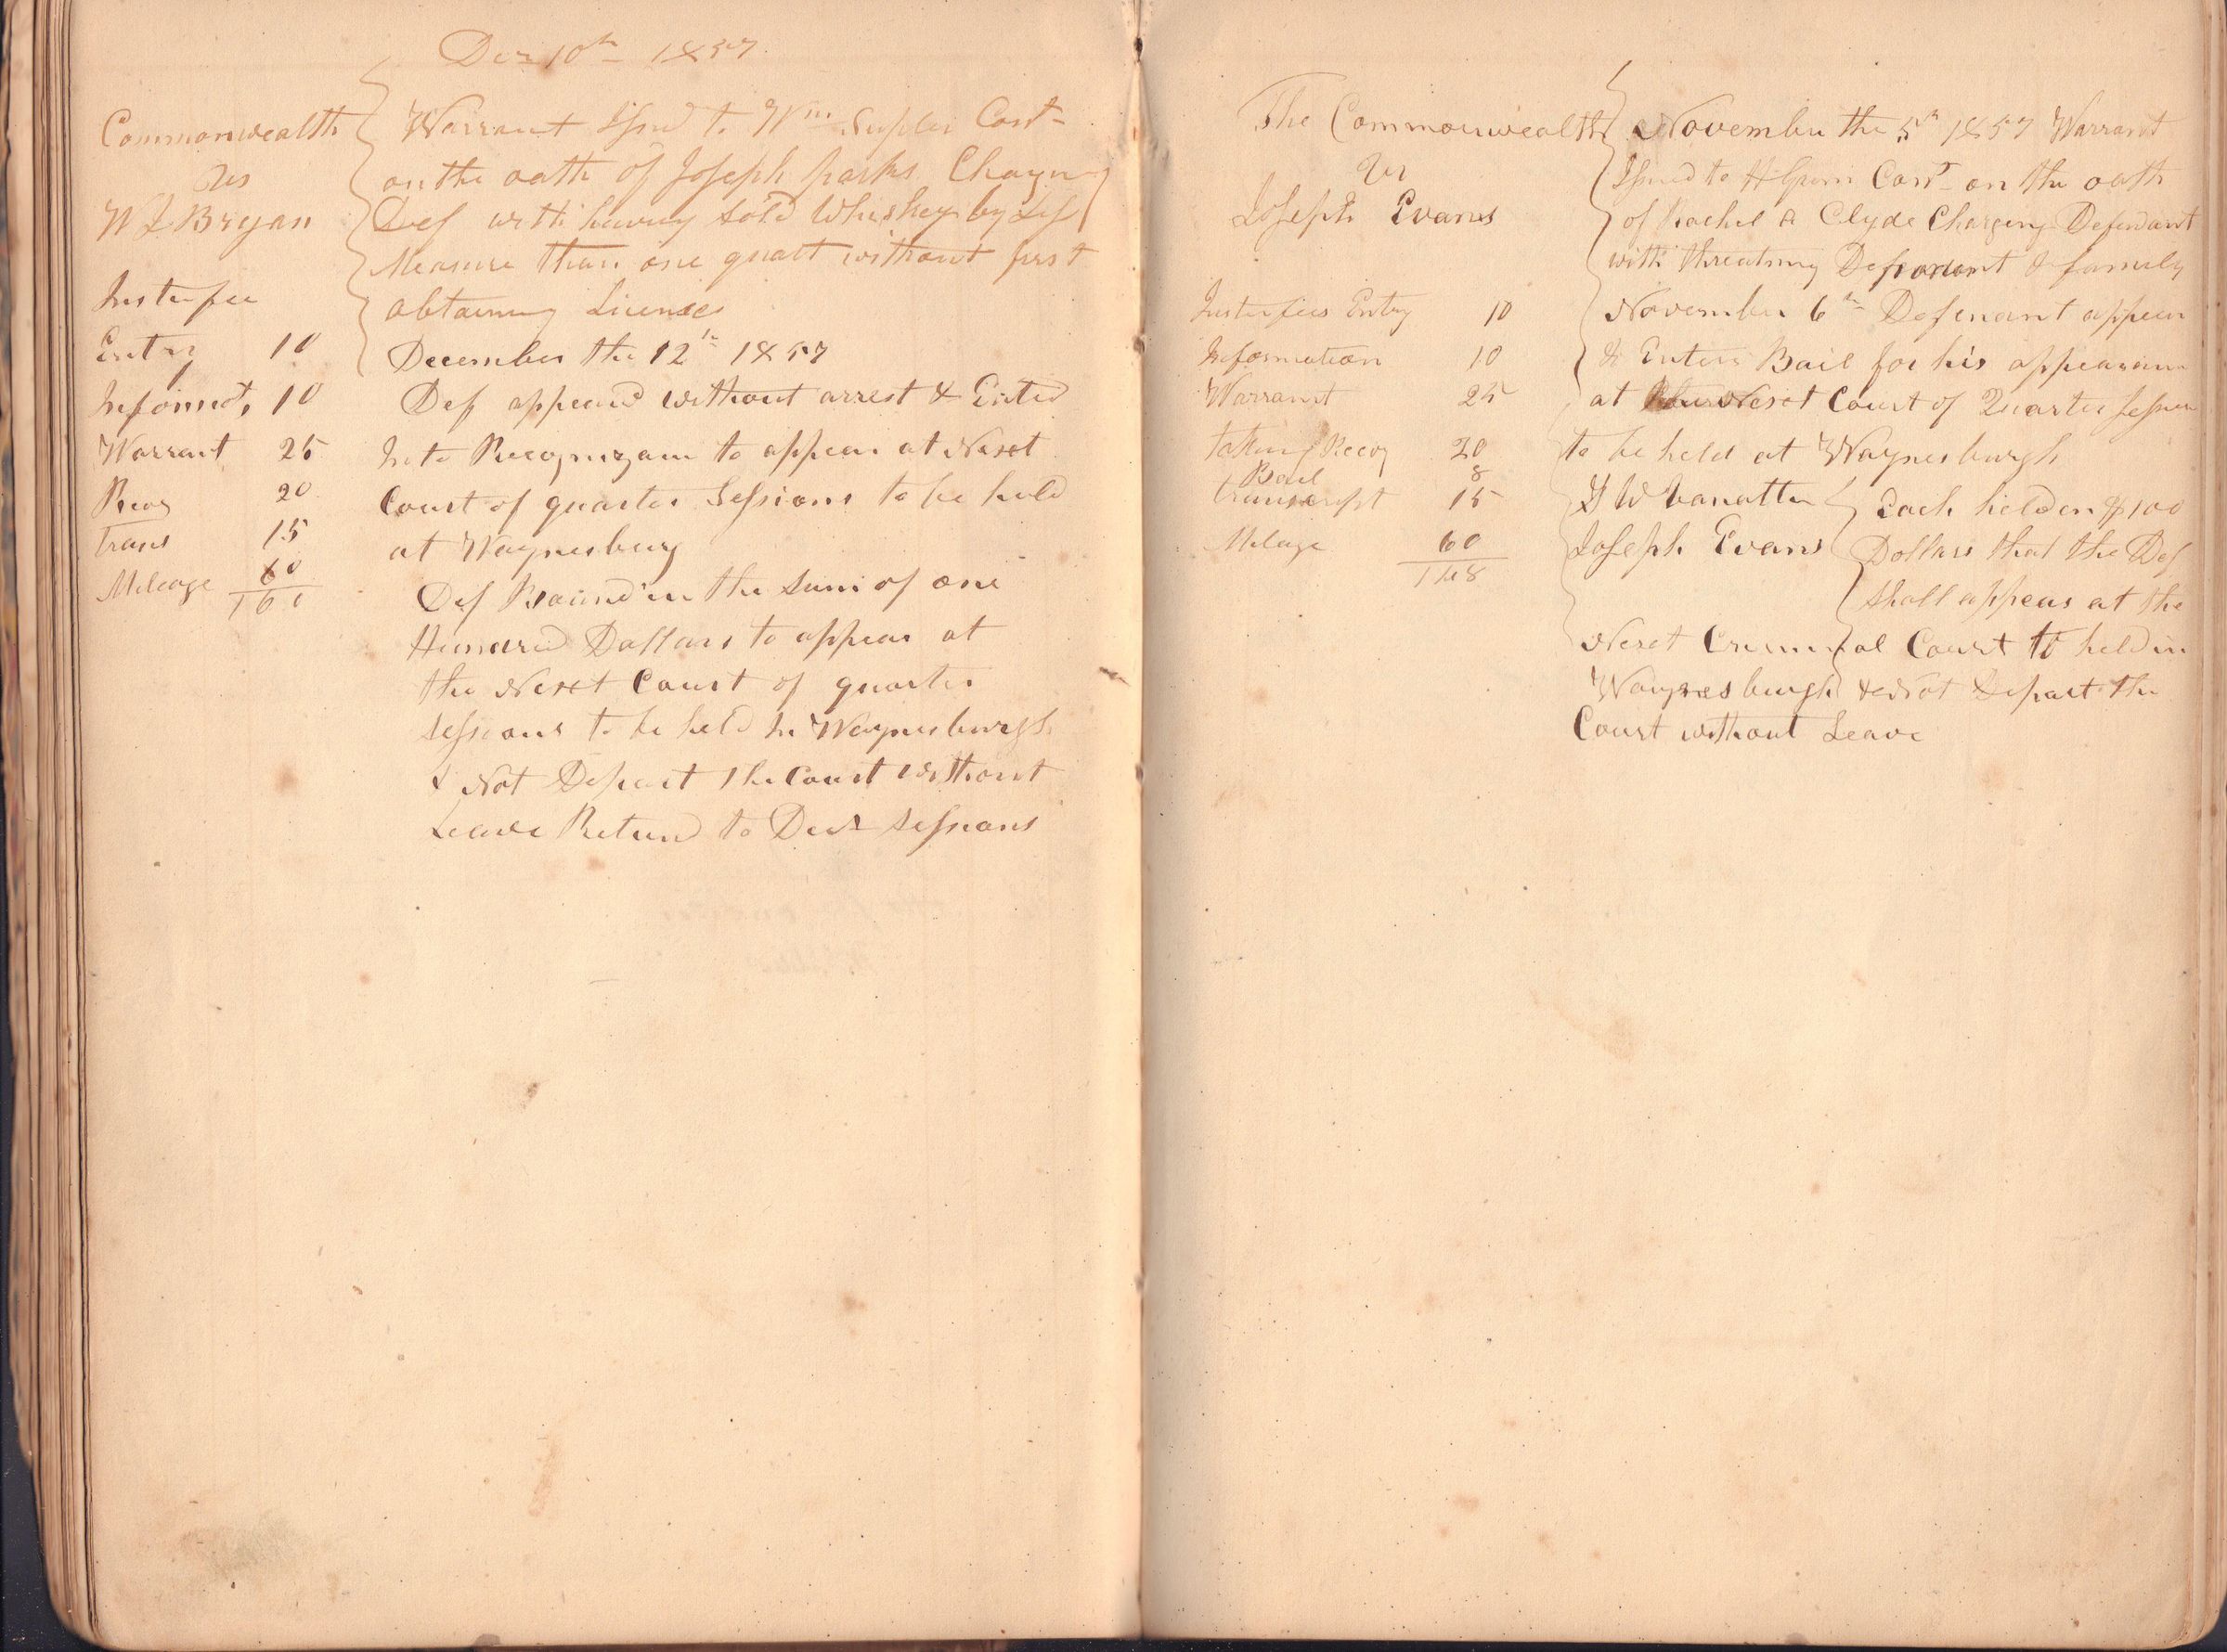 Dec 10th 1857
Commonwealth
vs
W J Bryan
Just fee
Entry 10
Informat, 10
Warrant 25
Recog 20
trans 15
Mileage 60
1 60
Warrant Issud to Wm Supler Const
on the oath of Joseph parks Chargng
Def with having sold Whiskey by Less
Measure than one quart without first
obtaining License
December the 12th 1857
Def appeard without arrest & Entd
Into Recognizance to appear at Next
Court of quarter Sessions to be held
at Waynesburg
Def Bound in the Sum of one
Hundred Dollars to appear at
the Next Court of quarter
sessions to be held In Waynesburgh
& Not Depart the Court Without
Leave Return to Dec Sessions
The Commonwealth
vs
Joseph Evans
Just fees Entry 10
Information 10
Warrant 25
taking Recog 20
Bail 8
transcript 15
Milage 60
1 48
November the 5th 1857 Warrant
Issued to Const on the oath
of Rachel A Clyde Charging Defendant
with threatning & family
November 6th Defenant appear
& Enters Bail for his appearance
at Next Court of Quarter Session
to be held at Waynesburgh
G W Vanatta Each held in $100
Joseph Evans Dollars that the Def
shall appear at the
Next Criminal Court to held in
Waynesburgh & Not Depart the
Court without Leave